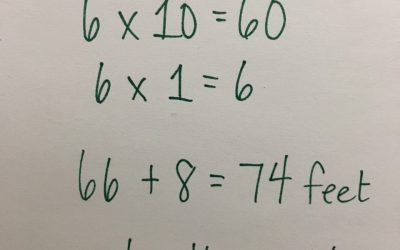 6 x 10 = 60
6 x 1 = 6
66 + 8 = 74 feet